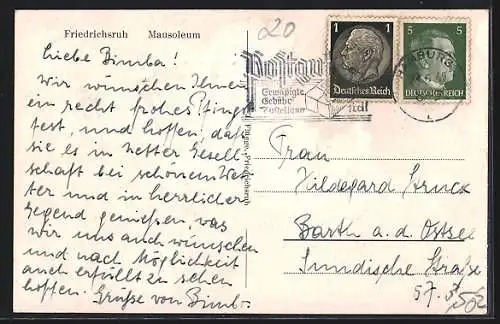 Friedrichsruh Mausoleum
20
Liebe Bimba!
Wir wünschen Ihnen
ein recht frohes Pfingst
fest, und hoffen, daß
sie es in netter Gesell-
schaft bei schönem Wet-
ter und in herrlicher
Gegend genießen was
wir uns auch wünschen
und nach Möglichkeit
auch erfüllt zu sehen
hoffen. Grüße von Bimbo.
Postgut
Ermäßigte
Gebühr
1 1
Deutsches Reich
5 5
DEUTSCHES REICH
HAMBURG
Frau
Hildegard Struck
Barth a. d. Ostsee
Sundische Straße
57.